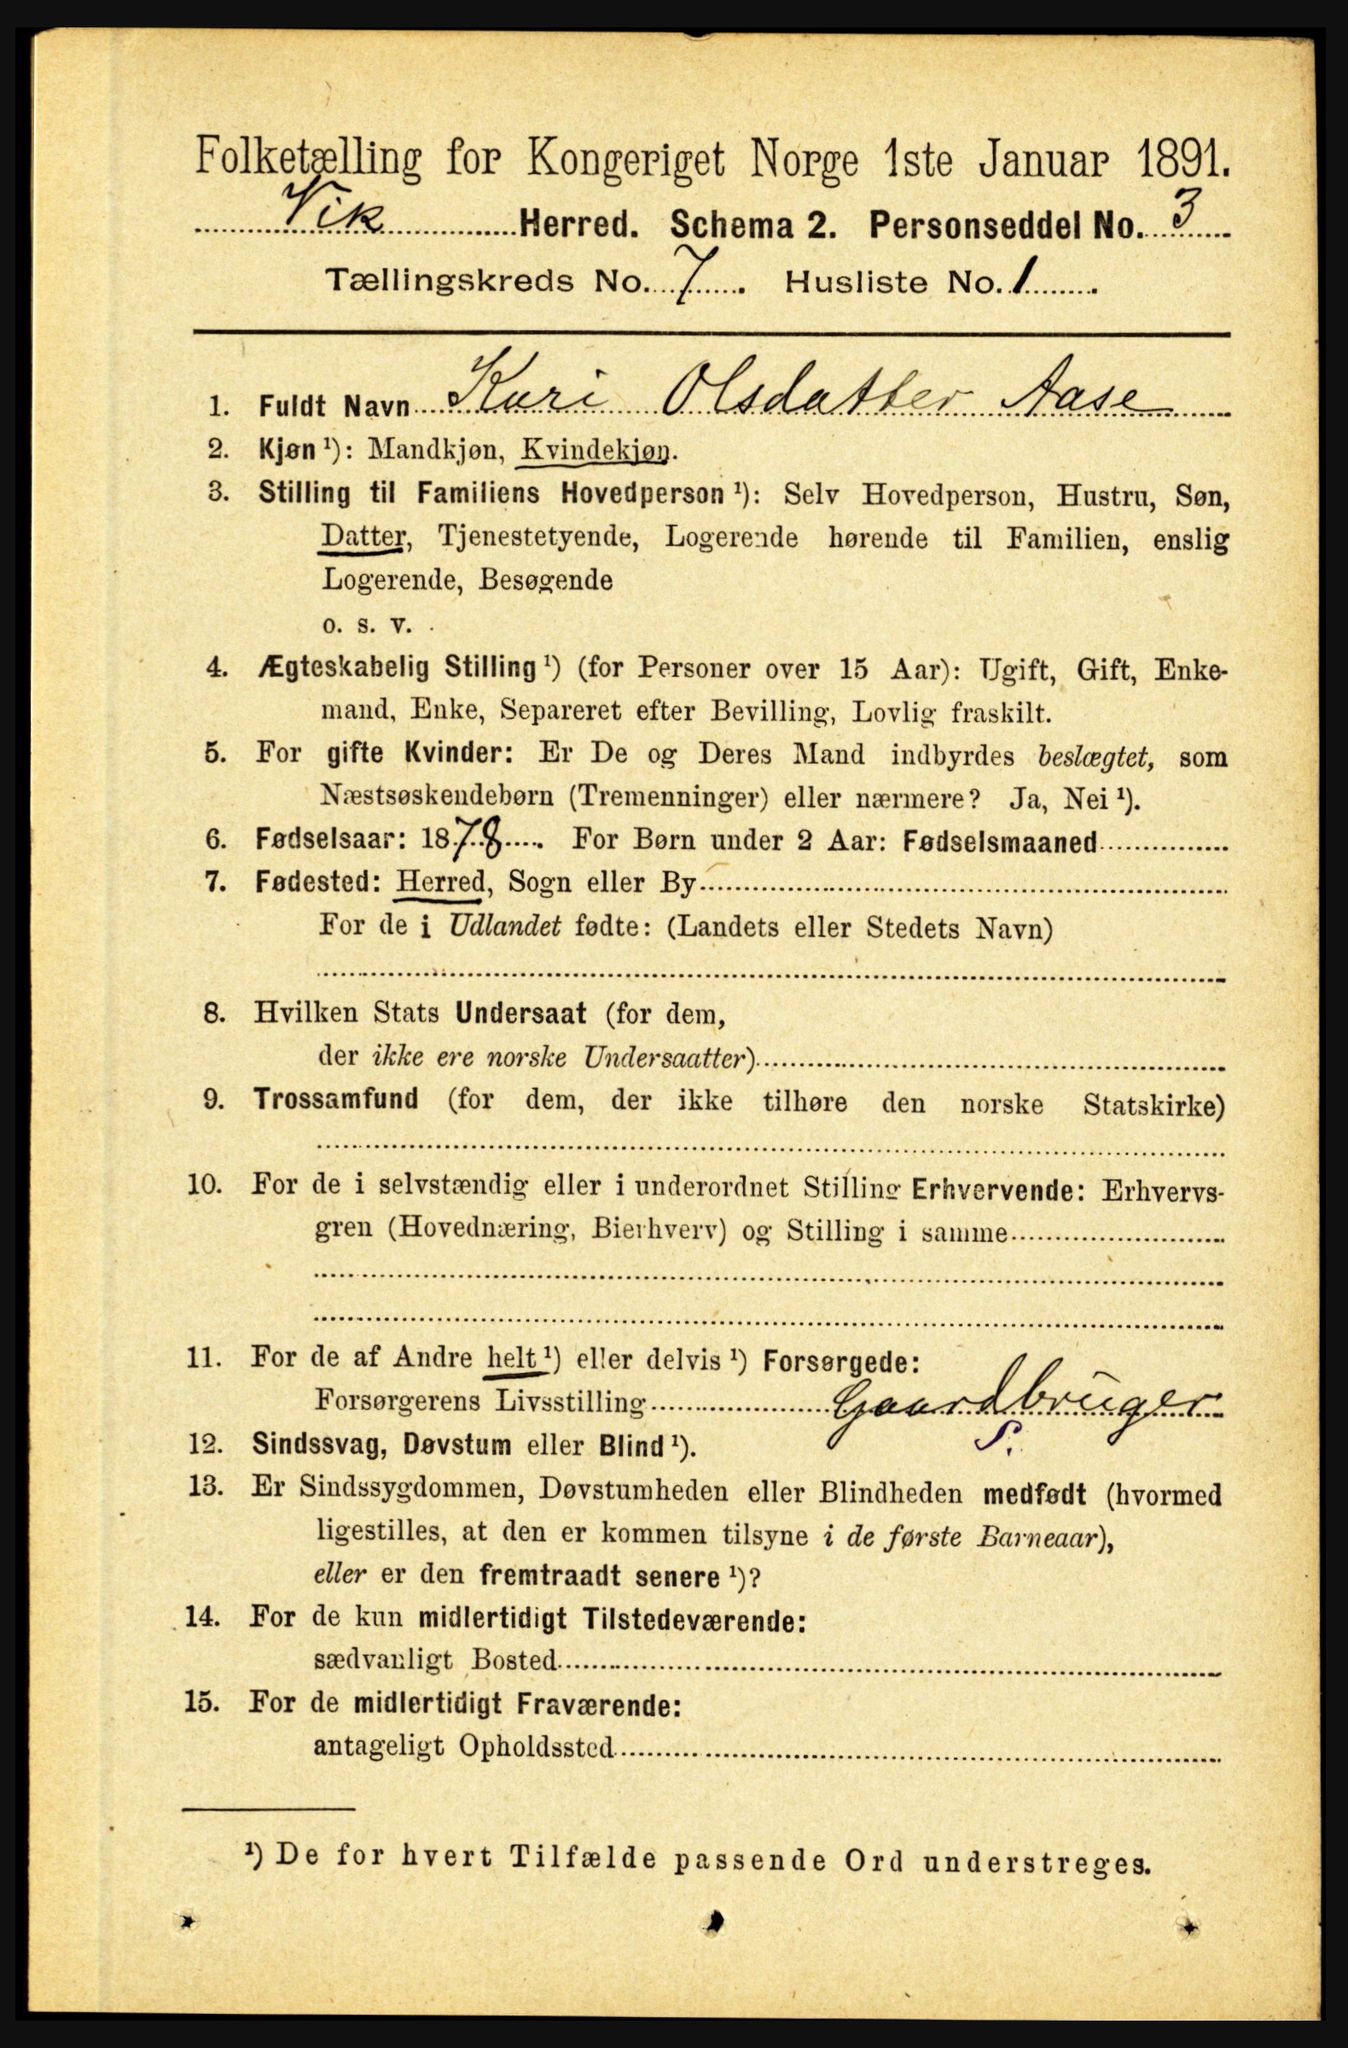 Folketælling for Kongeriget Norge 1ste Januar 1891.
Vik Herred. Schema 2. Personseddel No. 3
Tællingskreds No. 7. Husliste No. 1.
1. Fuldt Navn Kari Olsdatter Aase
2. Kjøn ¹): Mandkjøn, Kvindekjøn.
3. Stilling til Familiens Hovedperson ¹): Selv Hovedperson, Hustru, Søn,
Datter, Tjenestetyende, Logerende hørende til Familien, enslig
Logerende, Besøgende
o. s. v.
4. Ægteskabelig Stilling ¹) (for Personer over 15 Aar): Ugift, Gift, Enke-
mand, Enke, Separeret efter Bevilling, Lovlig fraskilt.
5. For gifte Kvinder: Er De og Deres Mand indbyrdes beslægtet, som
Næstsøskendebørn (Tremenninger) eller nærmere? Ja, Nei ¹).
6. Fødselsaar: 1878. For Børn under 2 Aar: Fødselsmaaned
7. Fødested: Herred, Sogn eller By
For de i Udlandet fødte: (Landets eller Stedets Navn)
8. Hvilken Stats Undersaat (for dem,
der ikke ere norske Undersaatter)
9. Trossamfund (for dem, der ikke tilhøre den norske Statskirke)
10. For de i selvstændig eller i underordnet Stilling Erhvervende: Erhvervs-
gren (Hovednæring, Bierhverv) og Stilling i samme
11. For de af Andre helt ¹) eller delvis ¹) Forsørgede:
Forsørgerens Livsstilling Gaardbruger
S.
12. Sindssvag, Døvstum eller Blind ¹).
13. Er Sindssygdommen, Døvstumheden eller Blindheden medfødt (hvormed
ligestilles, at den er kommen tilsyne i de første Barneaar),
eller er den fremtraadt senere ¹)?
14. For de kun midlertidigt Tilstedeværende:
sædvanligt Bosted
15. For de midlertidigt Fraværende:
antageligt Opholdssted
¹) De for hvert Tilfælde passende Ord understreges.